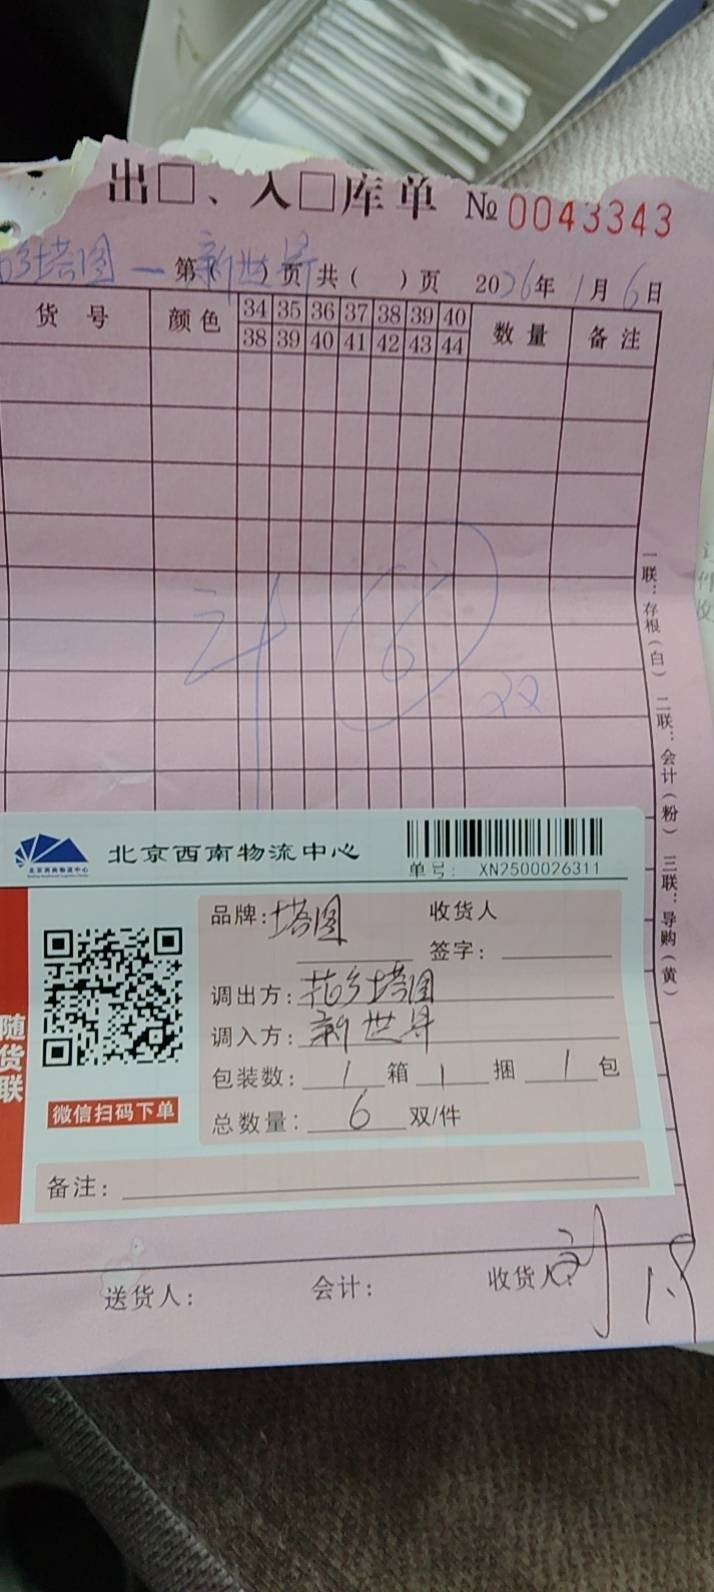 出□、入□库单 № 0043343
塔图 — 新世界
第( )页 共( )页 2026年1月6日
货号 颜色 34 35 36 37 38 39 40 数量 备注
38 39 40 41 42 43 44
计 6 双
一联:存根(白) 二联:会计(粉) 三联:导购(黄)
北京西南物流中心
单号: XN2500026311
随货联
微信扫码下单
品牌:塔图 收货人
签字:
调出方:花乡塔图
调入方:新世界
包装数: 1 箱 1 捆 1 包
总数量: 6 双/件
备注:
送货人: 会计: 收货人: 1.8